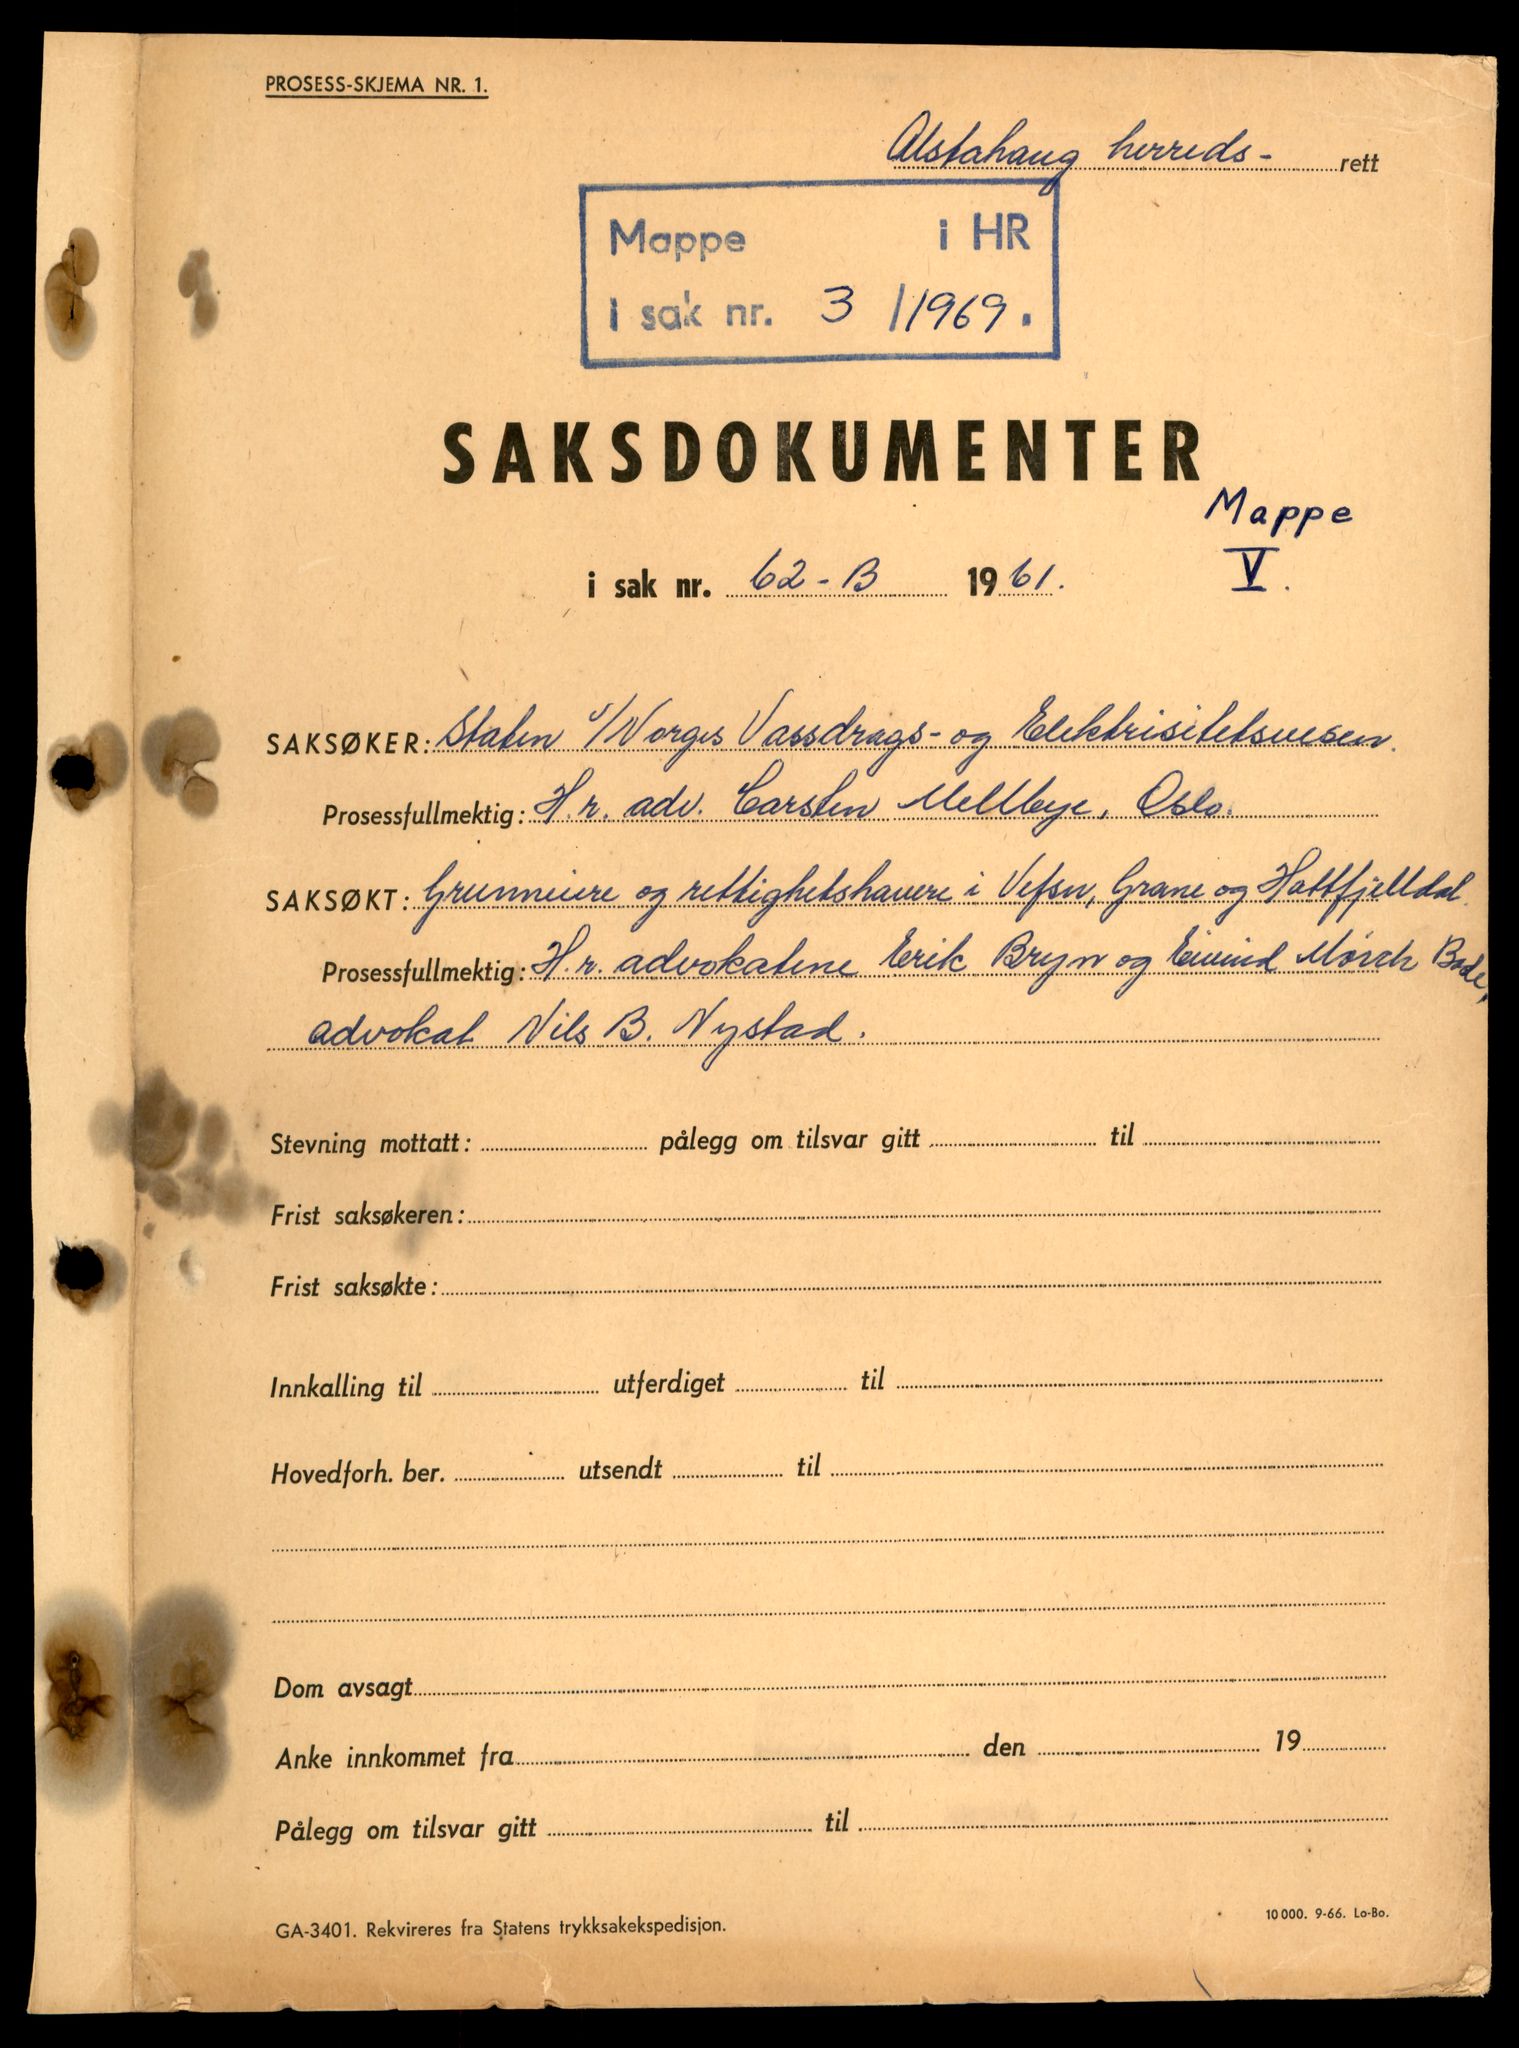 PROSESS-SKJEMA NR. 1.
Alstahaug herreds- rett
Mappe i HR
i sak nr. 3 /1969.
SAKSDOKUMENTER
Mappe
V.
i sak nr. 62-B 1961.
SAKSØKER: Staten v/Norges Vassdrags- og Elektrisitetsvesen.
Prosessfullmektig: H.r. adv. Carsten Mellbye, Oslo.
SAKSØKT: Grunneiere og rettighetshavere i Vefsn, Grane og Hattfjelldal.
Prosessfullmektig: H.r. advokatene Erik Bryn og Eivind Mørch Bode,
advokat Nils B. Nystad.
Stevning mottatt: pålegg om tilsvar gitt til
Frist saksøkeren:
Frist saksøkte:
Innkalling til utferdiget til
Hovedforh. ber. utsendt til
Dom avsagt
Anke innkommet fra den 19
Pålegg om tilsvar gitt til
GA-3401. Rekvireres fra Statens trykksakekspedisjon.
10 000. 9-66. Lo-Bo.